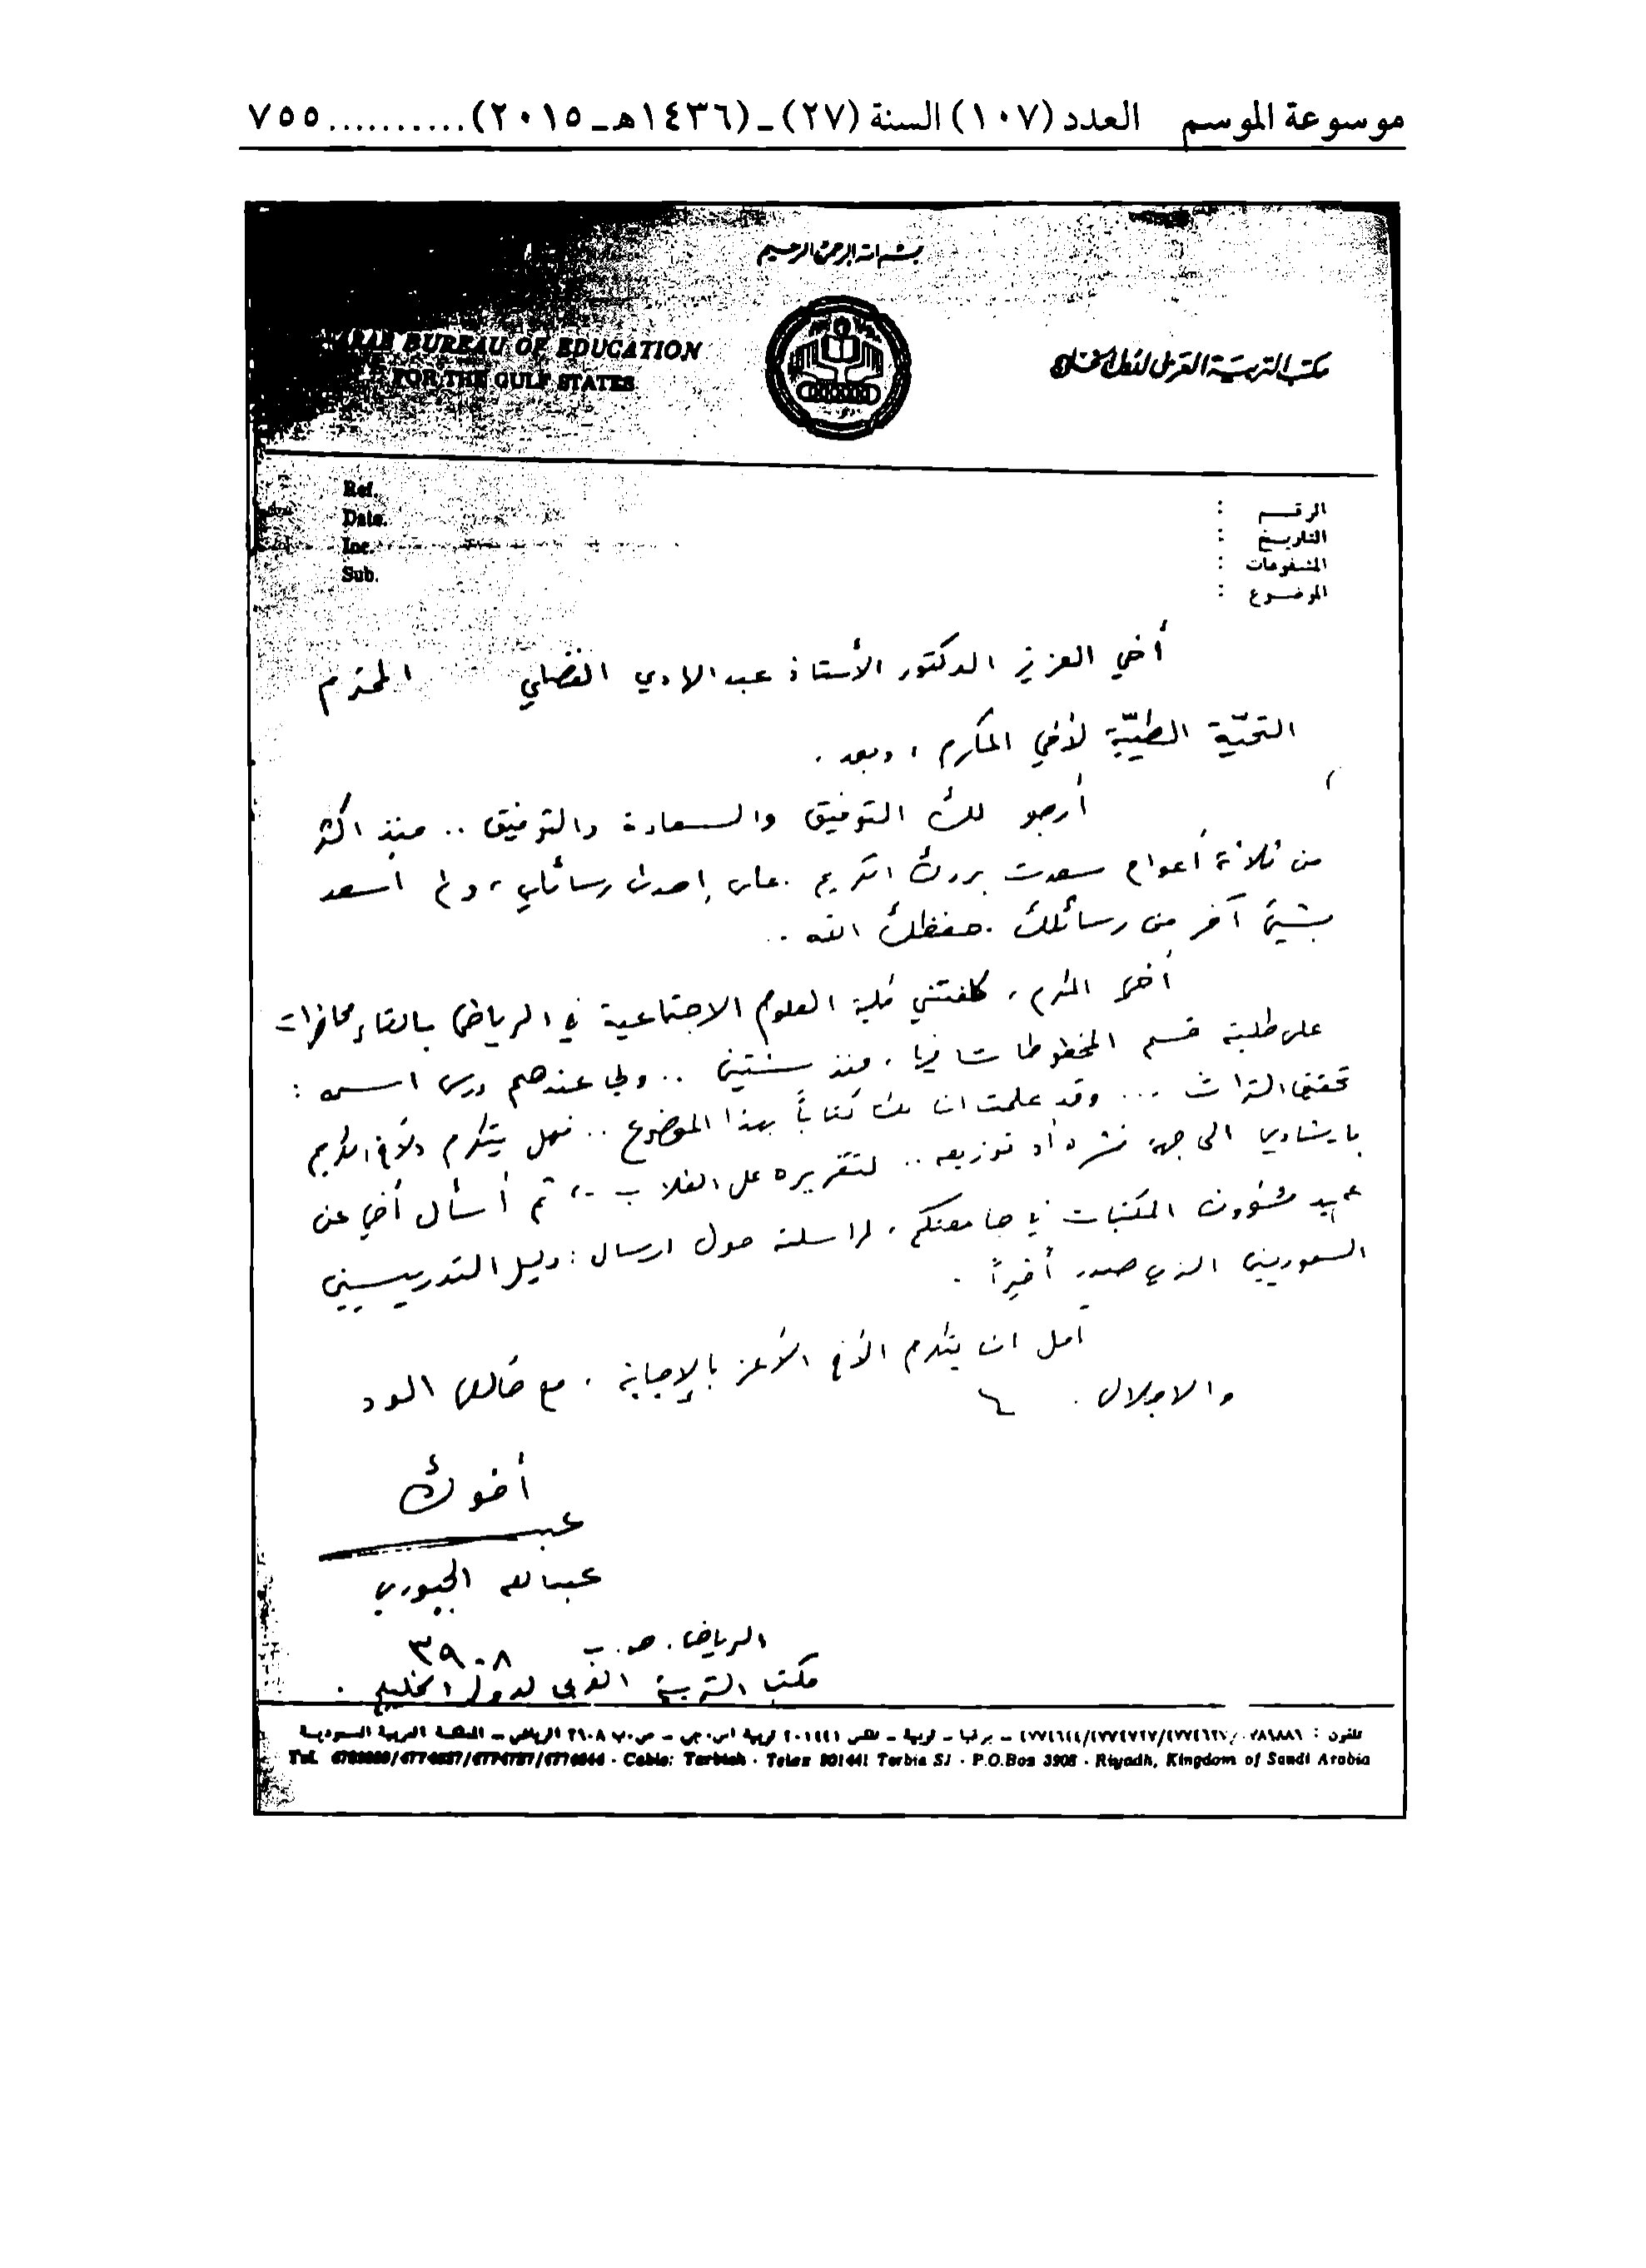 موسوعة الموسم العدد (١٠٧) السنة (٢٧) ـ (١٤٣٦هـ ـ ٢٠١٥) .......... ٧٥٥
بسم الله الرحمن الرحيم
BUREAU OF EDUCATION
FOR THE GULF STATES
مكتب التربية العربي لدول الخليج
Ref.
Date.
Inc.
Sub.
الرقم :
التاريخ :
المشفوعات :
الموضوع :
أخي العزيز الدكتور الأستاذ عبد الهادي الفضلي المحترم
التحيّة الطيّبة لأخي المكرم ، وبعد .
أرجو لك التوفيق والسعادة والتوفيق .. منذ اكثر
من ثلاثة أعوام سعدت بردك الكريم . على إحدى رسائلي ، ولم أسعد
بشيء آخر من رسائلك . حفظك الله ..
أخي المكرم ، كلفتني كلية العلوم الاجتماعية في الرياض بالقاء محاضرات
على طلبة قسم المخطوطات فيها ، منذ سنتين .. ولي عندهم درس اسمه :
تحقيق التراث ... وقد علمت ان لك كتاباً بهذا الموضوع .. فهل يتكرم الأخ الكريم
بارشادي الى جهة نشره أو توزيعه .. لتقريره على الطلاب .. ، ثم أسأل أخي عن
عميد شؤون المكتبات في جامعتكم ، لمراسلته حول ارسال : دليل التدريسيين
السعوديين الذي صدر أخيراً .
آمل ان يتكرم الأخ الأعز بالإجابة ، مع خالص الود
والاجلال .
أخوك
عبدالله الجبوري
الرياض . ص . ب ٣٩٠٨
مكتب التربية العربي لدول الخليج .
تلفون : ـ برقيا ـ تربية ـ تلكس ٢٠١٤٤١ تربية اس . جي ـ ص . ب ٣٩٠٨ الرياض ـ المملكة العربية السعودية
Tel. · Cable: Tarbiah · Telex Tarbia SJ · P.O.Box 3908 · Riyadh, Kingdom of Saudi Arabia